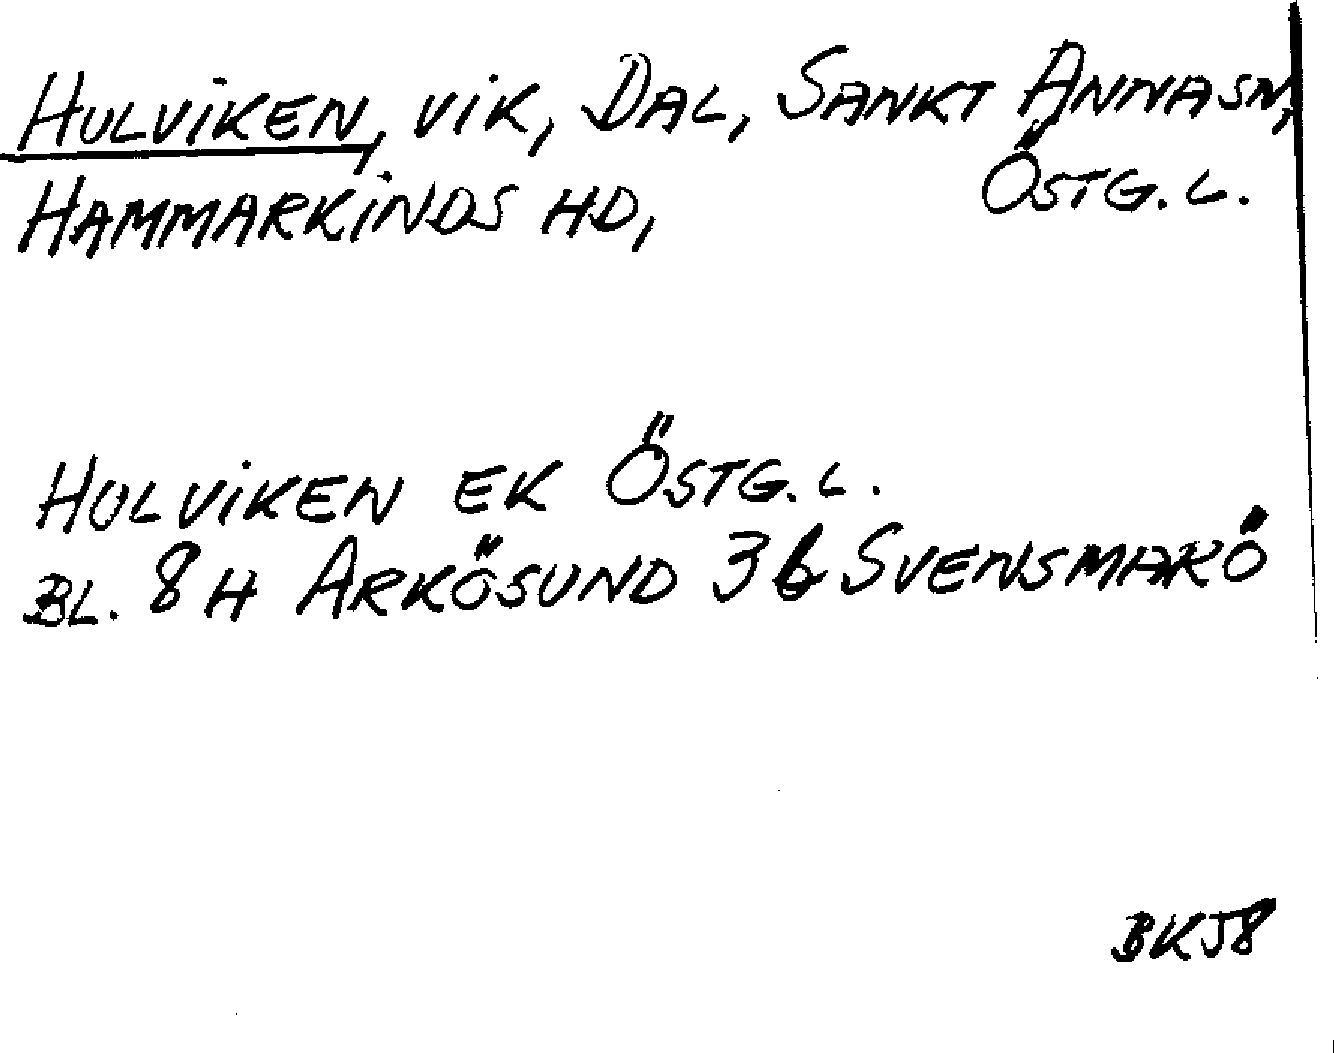 HULVIKEN, VIK, DAL, SANKT ANNA SN,
HAMMARKINDS HD, ÖSTG. L.
HULVIKEN EK ÖSTG. L.
BL. 8 H ARKÖSUND 3 b SVENSMARÖ
BKJ8